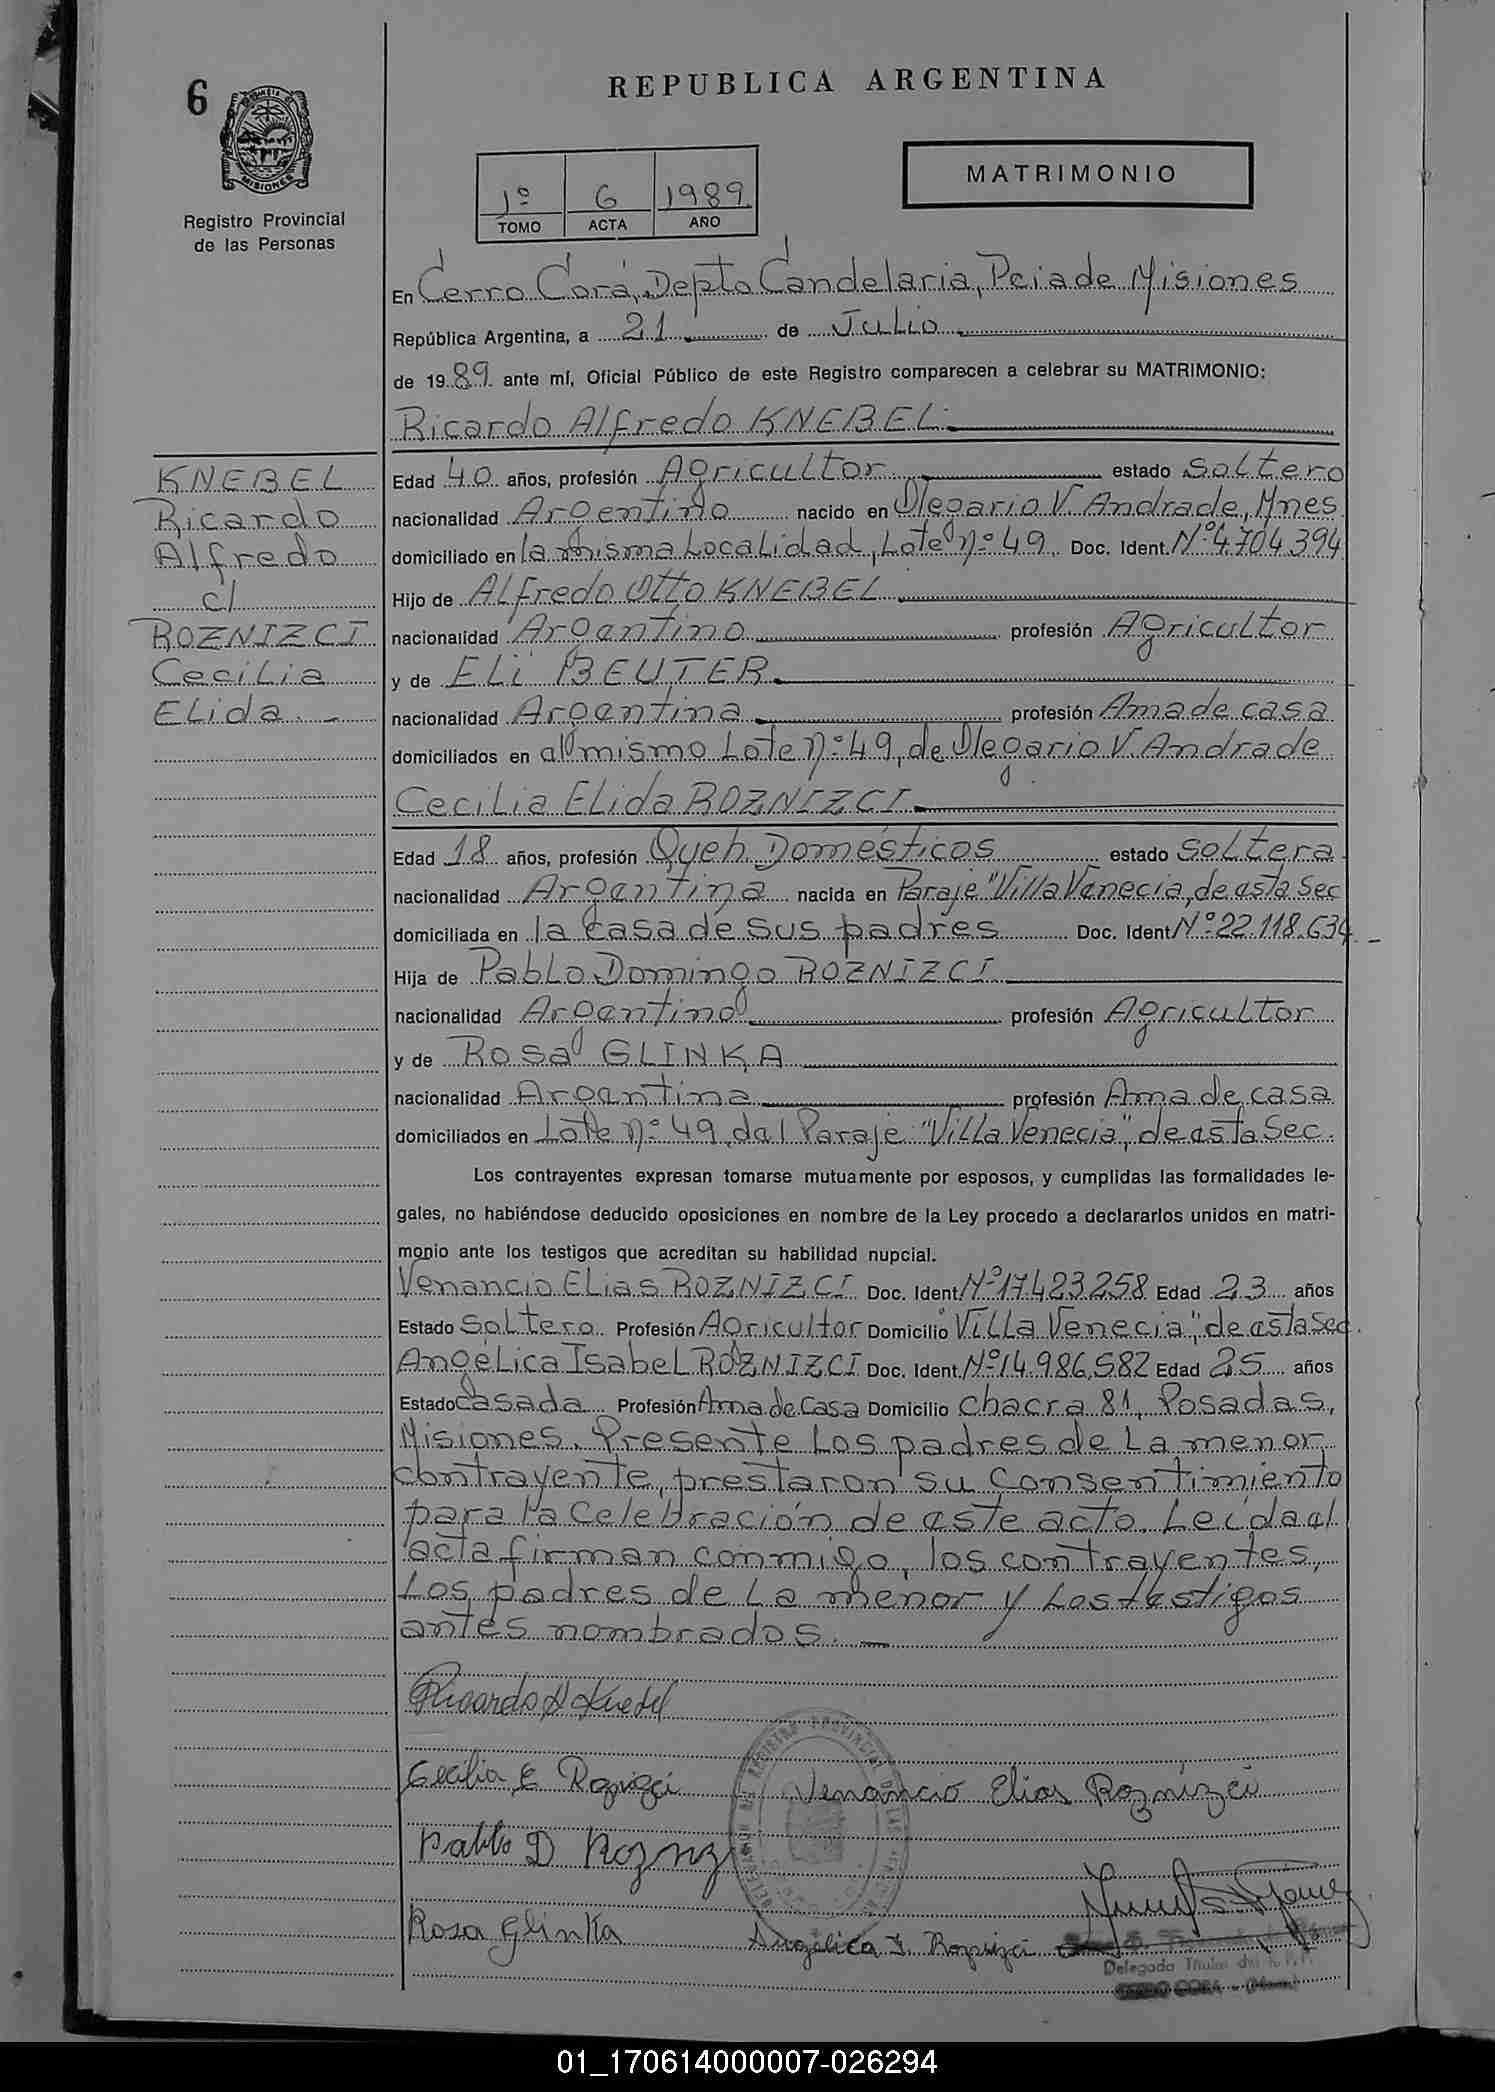 6
REPUBLICA ARGENTINA
MISIONES
Registro Provincial
de las Personas
1º 6 1989
TOMO ACTA AÑO
MATRIMONIO
En Cerro Corá, Depto Candelaria, Pcia de Misiones
República Argentina, a 21 de Julio
de 1989 ante mí, Oficial Público de este Registro comparecen a celebrar su MATRIMONIO:
Ricardo Alfredo KNEBEL
KNEBEL
Ricardo
Alfredo
c/
ROZNIZCI
Cecilia
Elida
Edad 40 años, profesión Agricultor estado Soltero
nacionalidad Argentino nacido en Olegario V. Andrade, Mnes
domiciliado en la misma Localidad, Lote nº 49 Doc. Ident. Nº 4.704.394
Hijo de Alfredo Otto KNEBEL
nacionalidad Argentino profesión Agricultor
y de Eli BEUTER
nacionalidad Argentina profesión Ama de casa
domiciliados en el mismo Lote nº 49, de Olegario V. Andrade
Cecilia Elida ROZNIZCI
Edad 18 años, profesión Queh. Domésticos estado Soltera
nacionalidad Argentina nacida en Paraje "Villa Venecia, de esta Sec
domiciliada en la casa de sus padres Doc. Ident Nº 22.118.634
Hija de Pablo Domingo ROZNIZCI
nacionalidad Argentino profesión Agricultor
y de Rosa GLINKA
nacionalidad Argentina profesión Ama de casa
domiciliados en Lote nº 49, del Paraje "Villa Venecia", de esta Sec.
Los contrayentes expresan tomarse mutuamente por esposos, y cumplidas las formalidades le-
gales, no habiéndose deducido oposiciones en nombre de la Ley procedo a declararlos unidos en matri-
monio ante los testigos que acreditan su habilidad nupcial.
Venancio Elias ROZNIZCI Doc. Ident. Nº 17.423.258 Edad 23 años
Estado Soltero Profesión Agricultor Domicilio Villa Venecia", de esta Sec.
Angélica Isabel ROZNIZCI Doc. Ident. Nº 14.986.582 Edad 25 años
Estado Casada Profesión Ama de Casa Domicilio Chacra 81, Posadas,
Misiones. Presente los padres de la menor
contrayente, prestaron su consentimiento
para la celebración de este acto. Leída el
acta firman conmigo, los contrayentes,
los padres de la menor y los testigos
antes nombrados.
Ricardo A Knebel
Cecilia E Roznizci Venancio Elias Roznizci
Pablo D Rozniz
Rosa Glinka Angélica I. Roznizci
Delegada Titular del R.P.P.
CERRO CORA - (Mnes.)
01_170614000007-026294